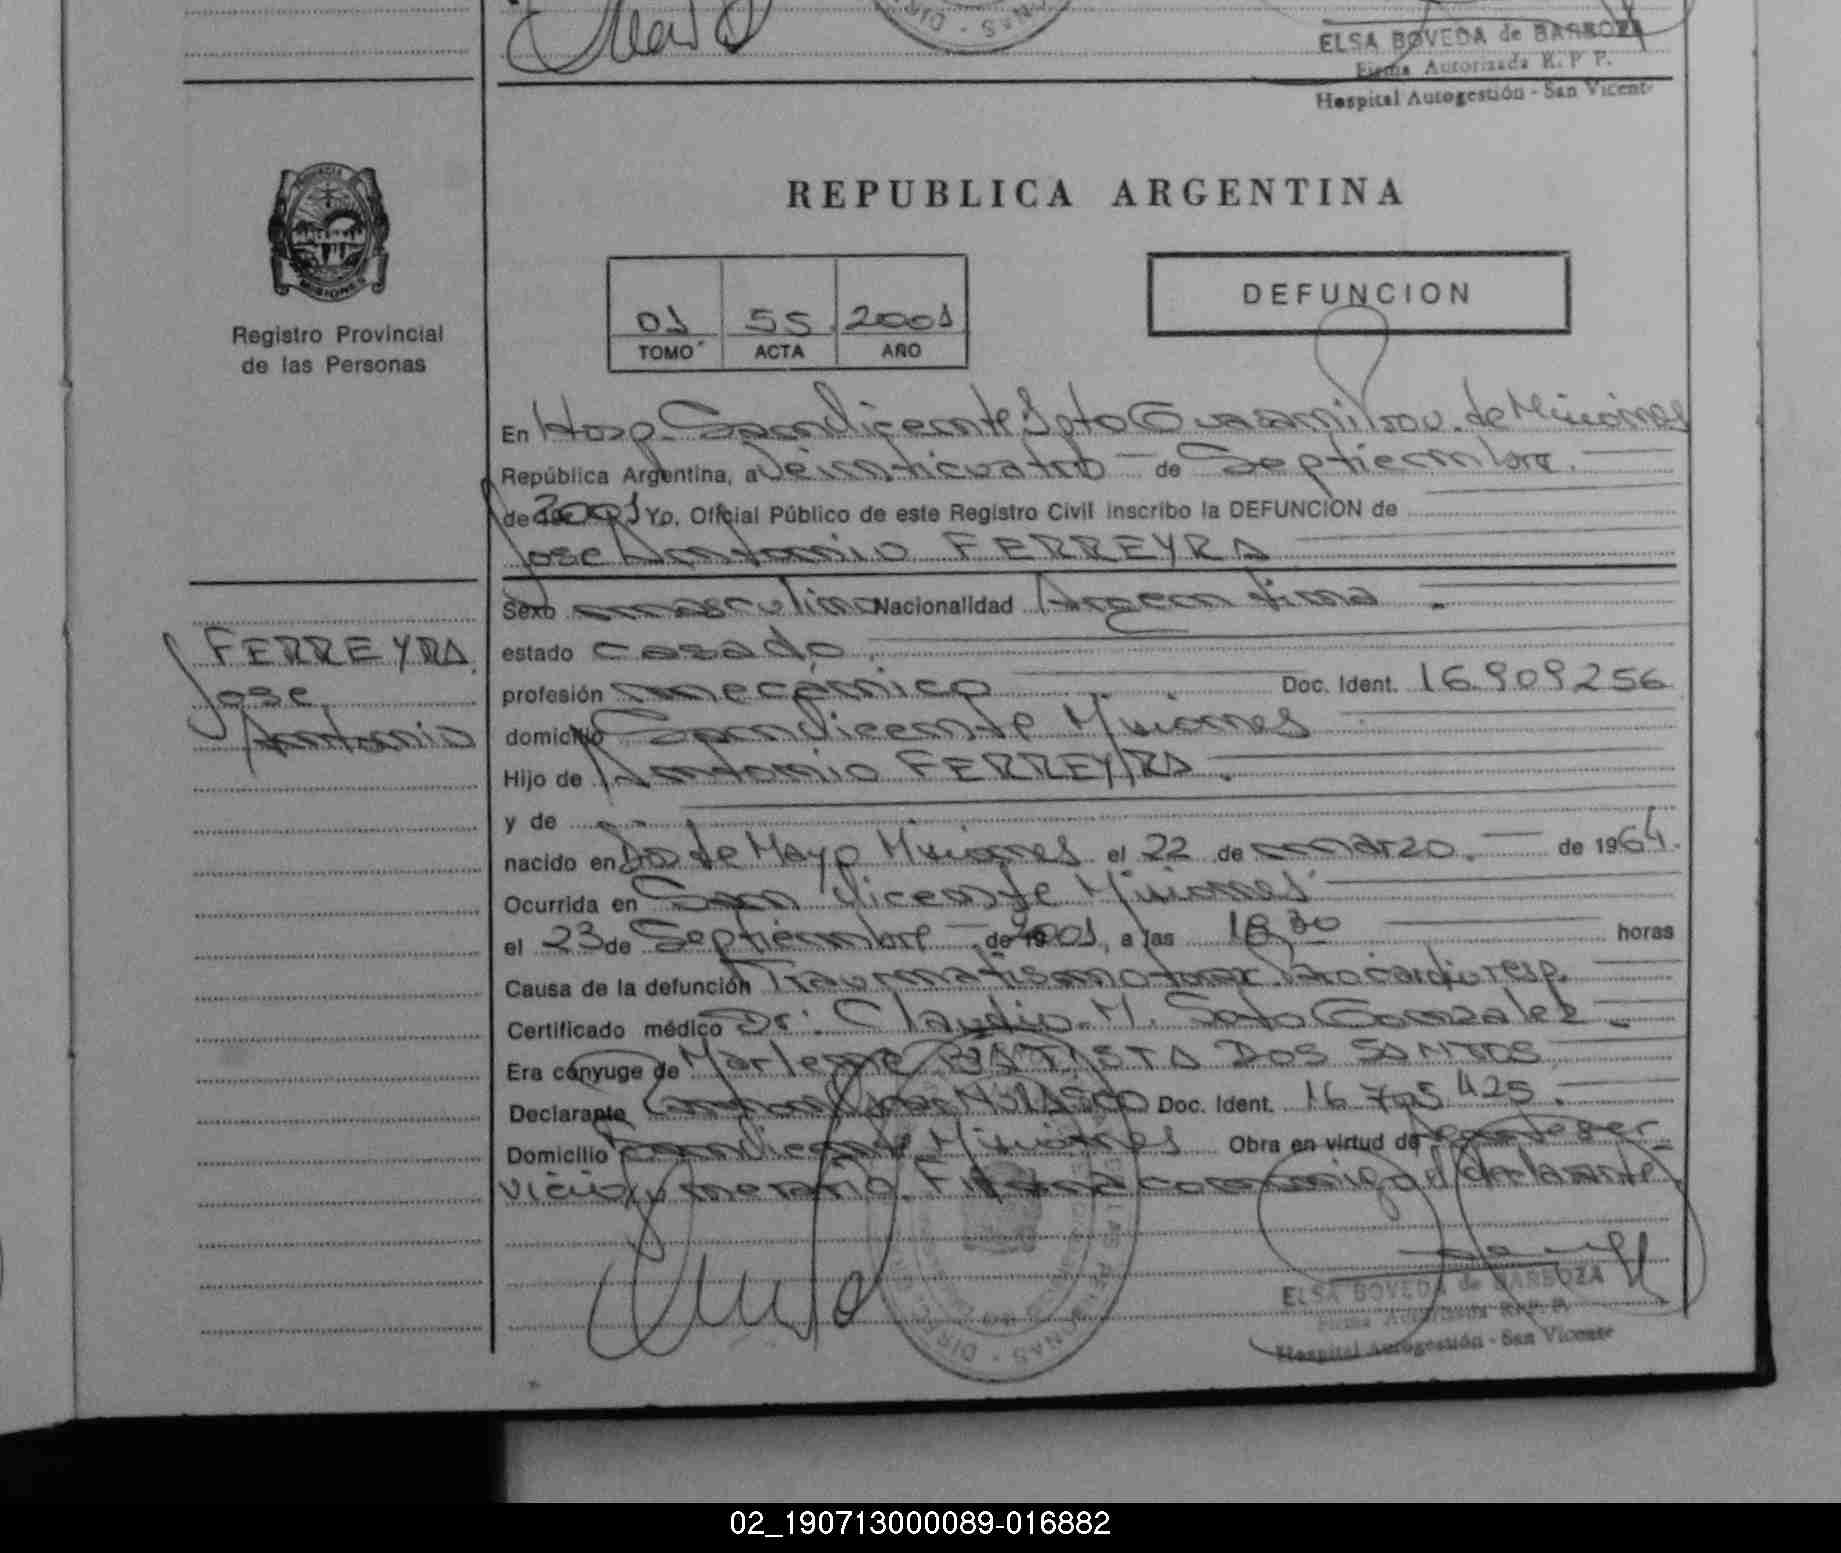 ELSA BOVEDA de BARBOZA
Firma Autorizada R. P. P.
Hospital Autogestión - San Vicente
REPUBLICA ARGENTINA
MISIONES
Registro Provincial
de las Personas
01 55 2001
TOMO ACTA AÑO
DEFUNCION
En Hosp. San Vicente Dpto Guaraní Prov. de Misiones
República Argentina, a Veinticuatro de Septiembre.
de 2001 Yo, Oficial Público de este Registro Civil inscribo la DEFUNCION de
Jose Antonio FERREYRA
FERREYRA
Jose
Antonio
Sexo masculino Nacionalidad Argentina
estado casado
profesión mecánico Doc. Ident. 16.909256
domicilio San Vicente Misiones
Hijo de Antonio FERREYRA.
y de
nacido en Dos de Mayo Misiones el 22 de marzo. de 1964.
Ocurrida en San Vicente Misiones
el 23 de Septiembre de 2001, a las 18,30 horas
Causa de la defunción Traumatismo torax. Paro cardioresp.
Certificado médico Dr. Claudio. M. Soto Gonzalez.
Era cónyuge de Marlene BATISTA DOS SANTOS
Declarante Doc. Ident. 16 705 425.
Domicilio San Vicente Misiones Obra en virtud de
Firma conmigo el declarante
ELSA BOVEDA de BARBOZA
Firma Autorizada R. P. P.
Hospital Autogestión - San Vicente
02_190713000089-016882